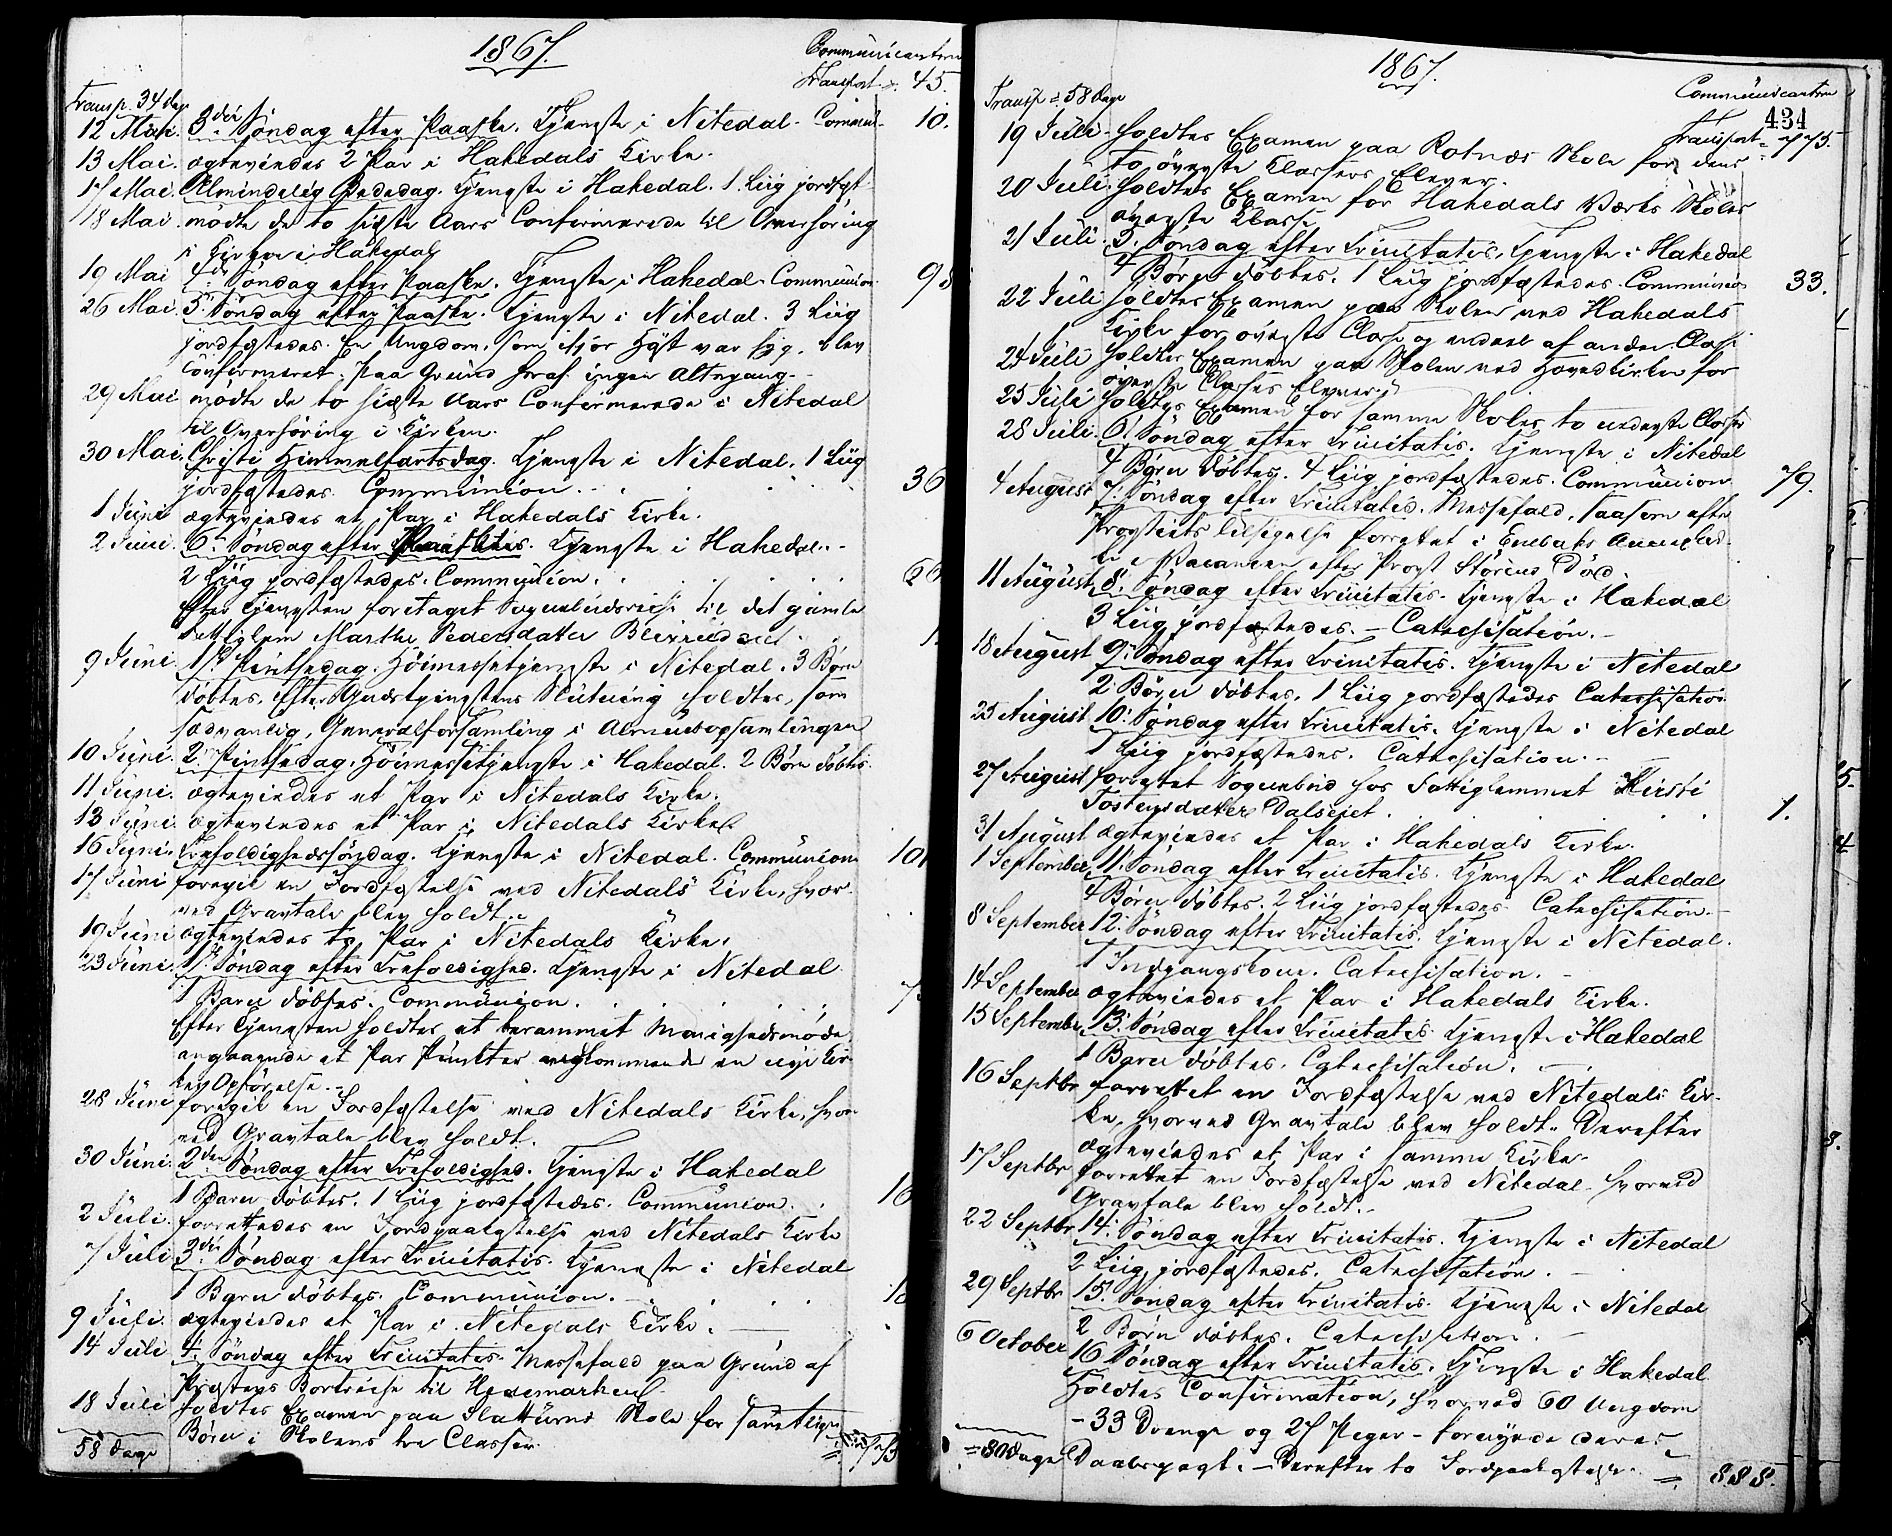 1867.
Communicantern
Transport = 45.
Transp. 34 dage
12 Mai. 3die Søndag efter Paaske. Tjeneste i Nitedal. Commun- 10.
13 Mai. ægteviedes 2 Par i Hakedals Kirke.
17 Mai. Almindelig Bededag. Tjeneste i Hakedal. 1 Liig jordfæst.
18 Mai. mødte de to sidste Aars Confirmerede til Overhøring
i Kirken i Hakedal
19 Mai 4de Søndag efter Paaske. Tjeneste i Hakedal. Communion 98
26 Mai. 5te Søndag efter Paaske. Tjeneste i Nitedal. 3 Liig
jordfæstedes. En Ungdom, som ifjor Høst var syg, blev
Confirmeret. Paa Grund heraf ingen Altergang.
29 Mai mødte de to sidste Aars Confirmerede i Nitedal
til Overhøring i Kirken.
30 Mai. Christi Himmelfartsdag. Tjeneste i Nitedal. 1 Liig
jordfæstedes. Communion. 36
1 Juni ægteviedes et Par i Hakedals Kirke.
2 Juni. 6te Søndag efter Paaske. Tjeneste i Hakedal.
2 Liig jordfæstedes. Communion.
Efter Tjenesten foretaget Sognebudsreise til det gamle
Fattiglem Marthe Pedersdatter 1.
9 Juni. 1ste Pintsedag. Høimessetjeneste i Nitedal. 3 Børn
døbtes. Efter Gudstjenestens Slutning holdtes, som
sædvanlig, Generalforsamling i Almueopsamlingen
10 Juni. 2. Pintsedag. Høimessetjeneste i Hakedal. 2 Børn døbtes.
11 Juni. ægteviedes et Par i Nitedals Kirke.
13 Juni. ægteviedes et Par i Nitedals Kirke.
16 Juni. Trefoldighedssøndag. Tjeneste i Nitedal. Communion 101
17 Juni foregik en Jordfæstelse ved Nitedals Kirke, hvor-
ved Gravtale blev holdt.
19 Juni ægteviedes to Par i Nitedals Kirke.
23 Juni. 1ste Søndag efter Trefoldighed. Tjeneste i Nitedal.
1 Barn døbtes. Communion.
Efter Tjenesten holdtes et berammet Menighedsmøde
angaaende et Par Punkter vedkommende en nye Kir-
kes Opførelse.
28 Juni foregik en Jordfæstelse ved Nitedals Kirke, hvor-
ved Gravtale blev holdt.
30 Juni. 2den Søndag efter Trefoldighed. Tjeneste i Hakedal
1 Barn døbtes. 1 Liig jordfæstedes. Communion.
2 Juli. forrettedes en Jordpaakastelse ved Nitedals Kirke
7 Juli 3die Søndag efter Trinitatis. Tjeneste i Nitedal
1 Barn døbtes. Communion.
9 Juli. ægteviedes et Par i Nitedals Kirke.
14 Juli 4. Søndag efter Trinitatis. Messefald paa Grund af
Præstens Bortreise til Hedemarken.
18 Juli holdtes Examen paa Slattums Skole for samtlige
Børn i Skolens tre Classer.
58 Dage = 775
1867.
Communicantern
434
Transp = 58 Dage
Transport = 775.
19 Juli. holdtes Examen paa Rotnæs Skole for dens
to øverste Classers Elever.
20 Juli. holdtes Examen for Hakedals Værks Skoles
øverste Classe
21 Juli. 5. Søndag efter Trinitatis. Tjeneste i Hakedal
4 Børn døbtes. 1 Liig jordfæstedes. Communion 33.
22 Juli holdtes Examen paa Skolen ved Hakedals
Kirke for øverste Classe og endeel af anden Classe.
24 Juli holdtes Examen paa Skolen ved Hovedkirken for
øverste Classes Elever.
25 Juli holdtes Examen for samme Skoles to nederste Classer
28 Juli. 6. Søndag efter Trinitatis. Tjeneste i Nitedal
4 Børn døbtes. 4 Liig jordfæstedes. Communion 79.
4 August 7. Søndag efter Trinitatis. Messefald, saasom efter
Provstiets Tilsigelse forrettet i Enebaks Annexkir-
ke i Vacancen efter Provst Størens Død.
11 August 8. Søndag efter Trinitatis. Tjeneste i Hakedal
3 Liig jordfæstedes. – Catechisation.
18 August 9. Søndag efter Trinitatis. Tjeneste i Nitedal
2 Børn døbtes. 1 Liig jordfæstedes Catechisation
25 August 10. Søndag efter Trinitatis. Tjeneste i Nitedal
1 Liig jordfæstedes. Catechisation.
27 August forrettet Sognebud hos Fattiglemmet Kirsti
Tostensdatter Dalseiet. 1.
31 August ægteviedes et Par i Hakedals Kirke.
1 September 11. Søndag efter Trinitatis. Tjeneste i Hakedal
4 Børn døbtes. 2 Liig jordfæstedes. Catechisation.
8 September 12. Søndag efter Trinitatis. Tjeneste i Nitedal.
1 Indgangskone. Catechisation.
14 September ægteviedes et Par i Hakedals Kirke.
15 September 13. Søndag efter Trinitatis Tjeneste i Hakedal
1 Barn døbtes. Catechisation.
16 Septbr forrettet en Jordfæstelse ved Nitedals Kir-
ke, hvorved Gravtale blev holdt. Derefter
ægteviedes et Par i samme Kirke.
17 Septbr forrettet en Jordfæstelse ved Nitedal, hvorved
Gravtale blev holdt.
22 Septbr 14. Søndag efter Trinitatis. Tjeneste i Nitedal
2 Liig jordfæstedes. Catechisation.
29 Septbr 15. Søndag efter Trinitatis. Tjeneste i Nitedal
2 Børn døbtes. Catechisation.
6 October 16 Søndag efter Trinitatis. Tjeneste i Hakedal.
Holdtes Confirmation, hvorved 60 Ungdom
– 33 Drenge og 27 Piger – fornyede deres
= 80 Dage Daabspagt. – Derefter to Jordpaakastelser. = 888.